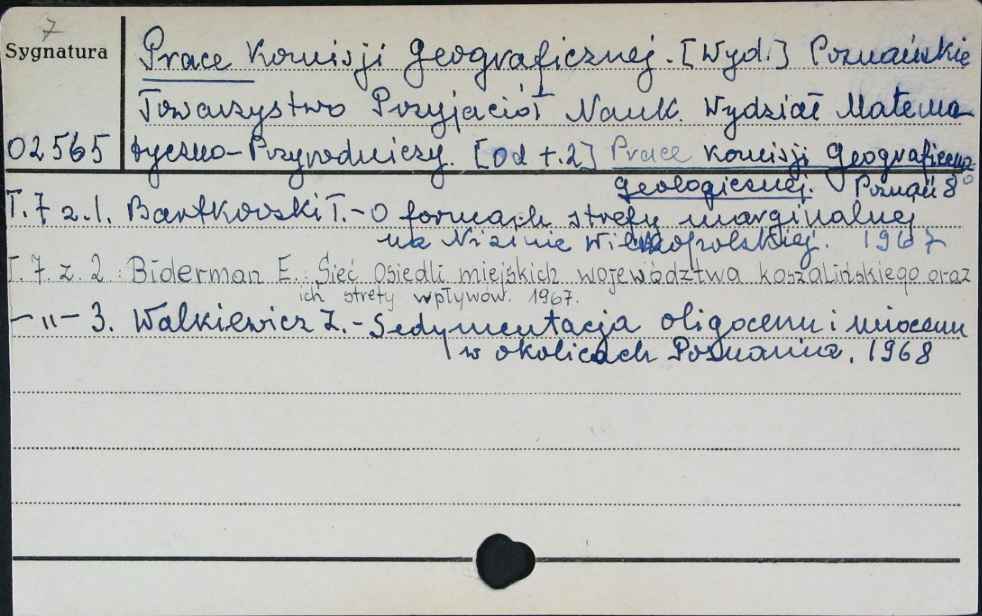 7
Sygnatura
Prace Komisji Geograficznej. [Wyd.] Poznańskie
Towarzystwo Przyjaciół Nauk. Wydział Matema-
02565 tyczno-Przyrodniczy. [Od t.2] Prace Komisji Geograficzno-
Geologicznej. Poznań 8°
T. 7 z. 1. Bartkowski T. - O formach strefy marginalnej
na Nizinie Wielkopolskiej. 1967
T. 7. z. 2. Biderman E.: Sieć osiedli miejskich województwa koszalińskiego oraz
ich strefy wpływów. 1967.
-"- 3. Walkiewicz Z. - Sedymentacja oligocenu i miocenu
w okolicach Poznania. 1968